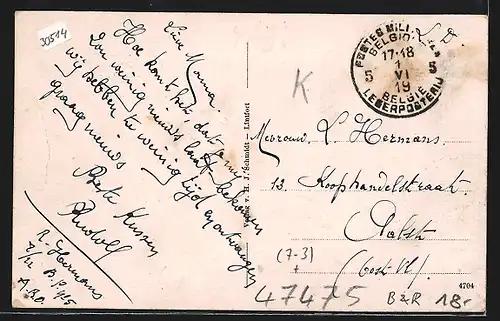 30514
Lieve Mama.
Hoe komt het, dat ge mij
zoo weinig nieuws laat bekomen
wij hebben te weinig tijd en ontvangen
graag nieuws
Beste Kussen
Rudolf
R. Hermans
A.B.O.
Verlag v. H. J. Schmidt - Lintfort
K
POSTES MILITAIRES
BELGIQUE
17-18
1
5 VI 5
19
BELGIË
LEGERPOSTERIJ
Mevrouw L. Hermans
13. Koophandelstraat
Aalst
(Oost Vl.)
(7-3)
47475
B & R 18.-
4704